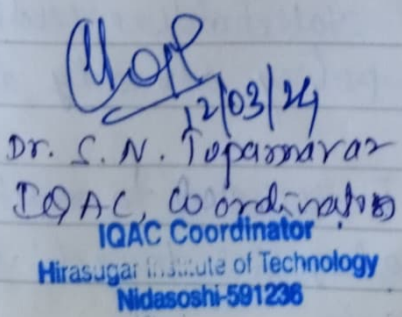 12/03/24
Dr. S. N. Toparmavar
IQAC, Coordinator
IQAC Coordinator
Hirasugar Institute of Technology
Nidasoshi-591236